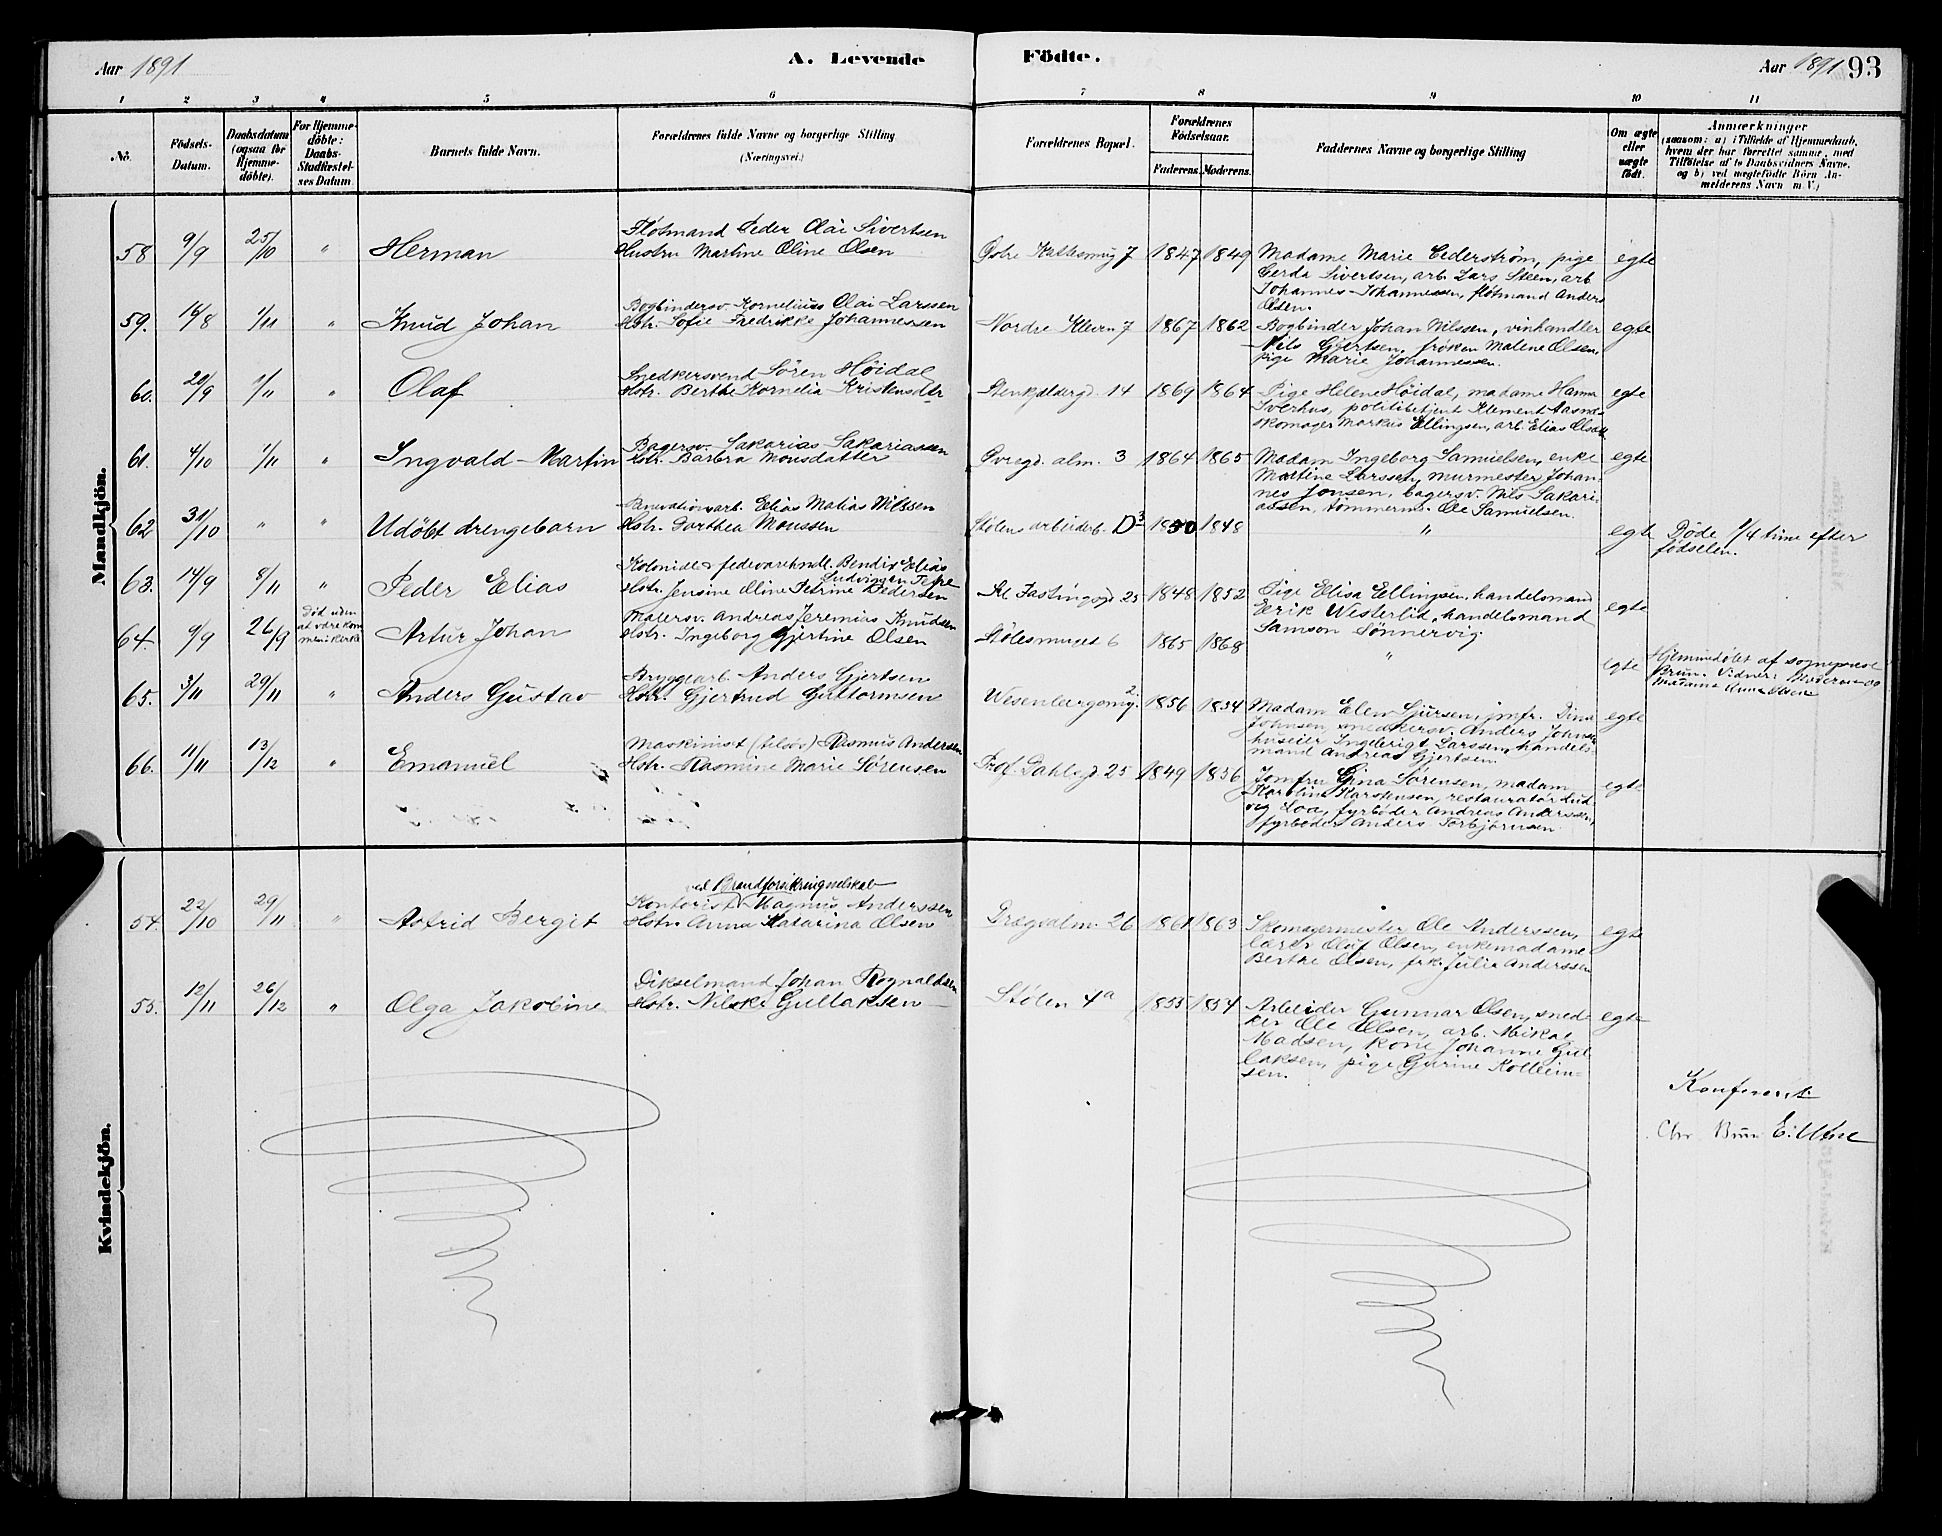 Aar 1891
A. Levende Födte.
Aar 1891 93
1 2 3 4 5 6 7 8 9 10 11
No.
Födsels-Datum.
Daabsdatum (ogsaa for Hjemme-döbte).
For Hjemme-döbte: Daabs-Stadfæstel-ses Datum
Barnets fulde Navn.
Forældrenes fulde Navne og borgerlige Stilling
(Næringsvei.)
Forældrenes Bopæl.
Forældrenes Födselsaar.
Faderens. Moderens.
Faddernes Navne og borgerlige Stilling
Om ægte eller uægte født.
Anmærkninger
(saasom: a) i Tilfælde af Hjemmedaab, hvem der har forrettet samme, med Tilföielse af to Daabsvidners Navne, og b) ved uægtefödte Börn An-melderens Navn m. V.)
Mandkjön.
58 9/9 25/10 " Herman
Fløtmand Peder Olai Sivertsen
Hustru Martine Oline Olsen
Østre 7 1847 1849
Madame Marie Cederstrøm, pige
Gerda Sivertsen, arb. Lars Steen, arb
Johannes Johannessen, fløtmand Anders
Olsen.
egte
59. 16/8 1/11 " Knud Johan
Bogbindersv. Kornelius Olai Larssen
Hstr. Sofie Fredrikke Johannessen
Nordre Kleven 7 1867 1862
Bogbinder Johan Nilssen, vinhandler
Nils Gjertsen, frøken Malene Olsen,
pige Marie Johannessen.
egte
60. 20/9 1/11 " Olaf
Snedkersvend Sören Höidal
Hstr. Berthe Kornelia Kristensdtr
Stenkjeldergd. 14 1869 1864
Pige Helene Høidal, madame Hanna
Iverhus, politibetjent Klement
skomager Markus Ellingsen, arb. Elias Olsen
egte
61. 4/10 1/11 " Ingvald Martin
Bagersv. Sakarias Sakariassen
Hstr. Barbra Monsdatter
Øvregd. alm. 3 1864 1865
Madam Ingeborg Samuelsen, enke
Martine Larssen, murmester Johan-
nes Jonsen, bagersv. Nils Sakari-
assen, tömmerm. Ole Samuelsen.
egte
62 31/10 " " Udöbt drengebarn
arb. Elias Matias Nilssen
Hstr. Dorthea Monssen
Stølens arbeiderb. D3 1850 1848
"
egte
Døde 1/4 time efter
fødselen.
63. 14/9 8/11 " Peder Elias
Kolonial & fedevarehndl. Bendix Elias
Ludvigsen
Hstr. Jensine Oline Petrine Pedersen
Kl. Fastingsgd 25 1848 1852
Pige Elisa Ellingsen, handelsmand
Erik Westerlid, handelsmand
Samson Sönnervig.
egte
64. 9/9 26/9
Død uden
at være kom
men i kirke
Artur Johan
Malersv. Andreas Jeremias Knudsen
Hstr. Ingeborg Gjertine Olsen
Stølesmuget 6 1865 1868
"
egte
Hjemmedøbt af sogneprest
Brun. Vidner: Moderen og
Madame Anna Olsen
65. 3/11 29/11 " Anders Gustav
Bryggearb. Anders Gjertsen
Hstr. Gjertrud Guttormsen
Wesenbergsmg. 2. 1856 1854
Madam Elen Sjursen, jmfr. Dina
Johnsen, snedkersv. Anders Johnsen
huseier Ingebrigt Larssen, handels-
mand Andreas Gjertsen.
egte
66. 11/11 13/12 " Emanuel
Maskinist (tilsøs) Rasmus Andersen
Hstr. Rasmine Marie Sørensen
Prof. Dahlsgd 25 1849 1856
Jomfru Gina Sørensen, madam
Karoline Karstensen, restauratør Lud-
vig Loa, fyrbøder Andreas Anderssen,
fyrbøder Anders Torbjörnsen.
egte
Kvindekjön.
54. 22/10 29/11 " Astrid Bergit
ved Brandforsikringsselskab
Kontorist Magnus Anderssen
Hstr. Anna Katarina Olsen
Drægsalm. 26 1861 1863
Skomagermester Ole Anderssen,
lærer Oluf Olsen, enkemadame
Berthe Olsen, frk. Julie Anderssen
egte
55. 12/11 26/12 " Olga Jakobine
Dikselmand Johan Rognaldsen
Hstr. Nilske Gullaksen
Stølen 4a 1855 1854
Arbeider Gunnar Olsen, sned-
ker Ole Olsen, arb. Mikal
Madsen, kone Johanne Gul
laksen, pige Gurine
sen.
egte
Konfereret
Chr. Brun E. Utne